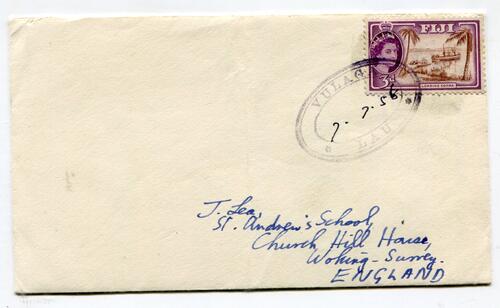 FIJI
3d
LOADING COPRA
VULAG
7. 7. 56
LAU
J. Lea,
St. Andrew's School,
Church Hill House,
Woking - Surrey.
ENGLAND